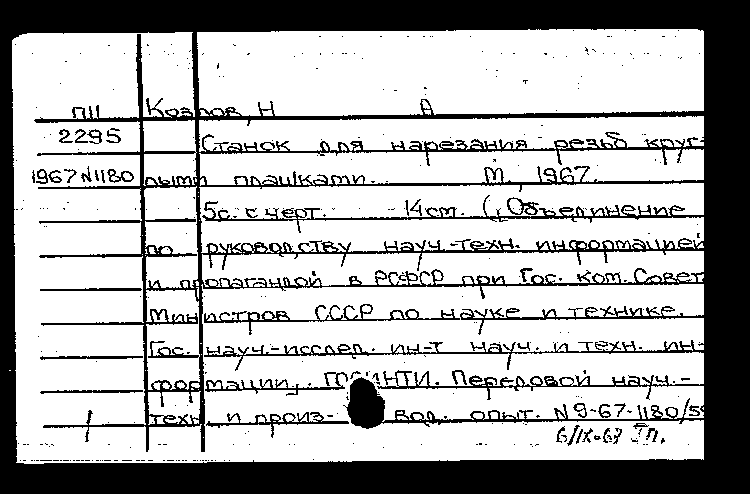 ПІІ Козлов, Н А
2295 Станок для нарезания резьб круг-
1967 N1180 лыми плашками. М., 1967.
5с. с черт. 14см. („Объединение
по руководству науч.-техн. информацией
и пропагандой в РСФСР при Гос. ком. Совета
Министров СССР по науке и технике.
Гос. науч.-исслед. ин-т науч. и техн. ин-
формации„. ГОСИНТИ. Передовой науч.-
техн. и произ-вод. опыт. N 9-67-1180/59
6/IX-67